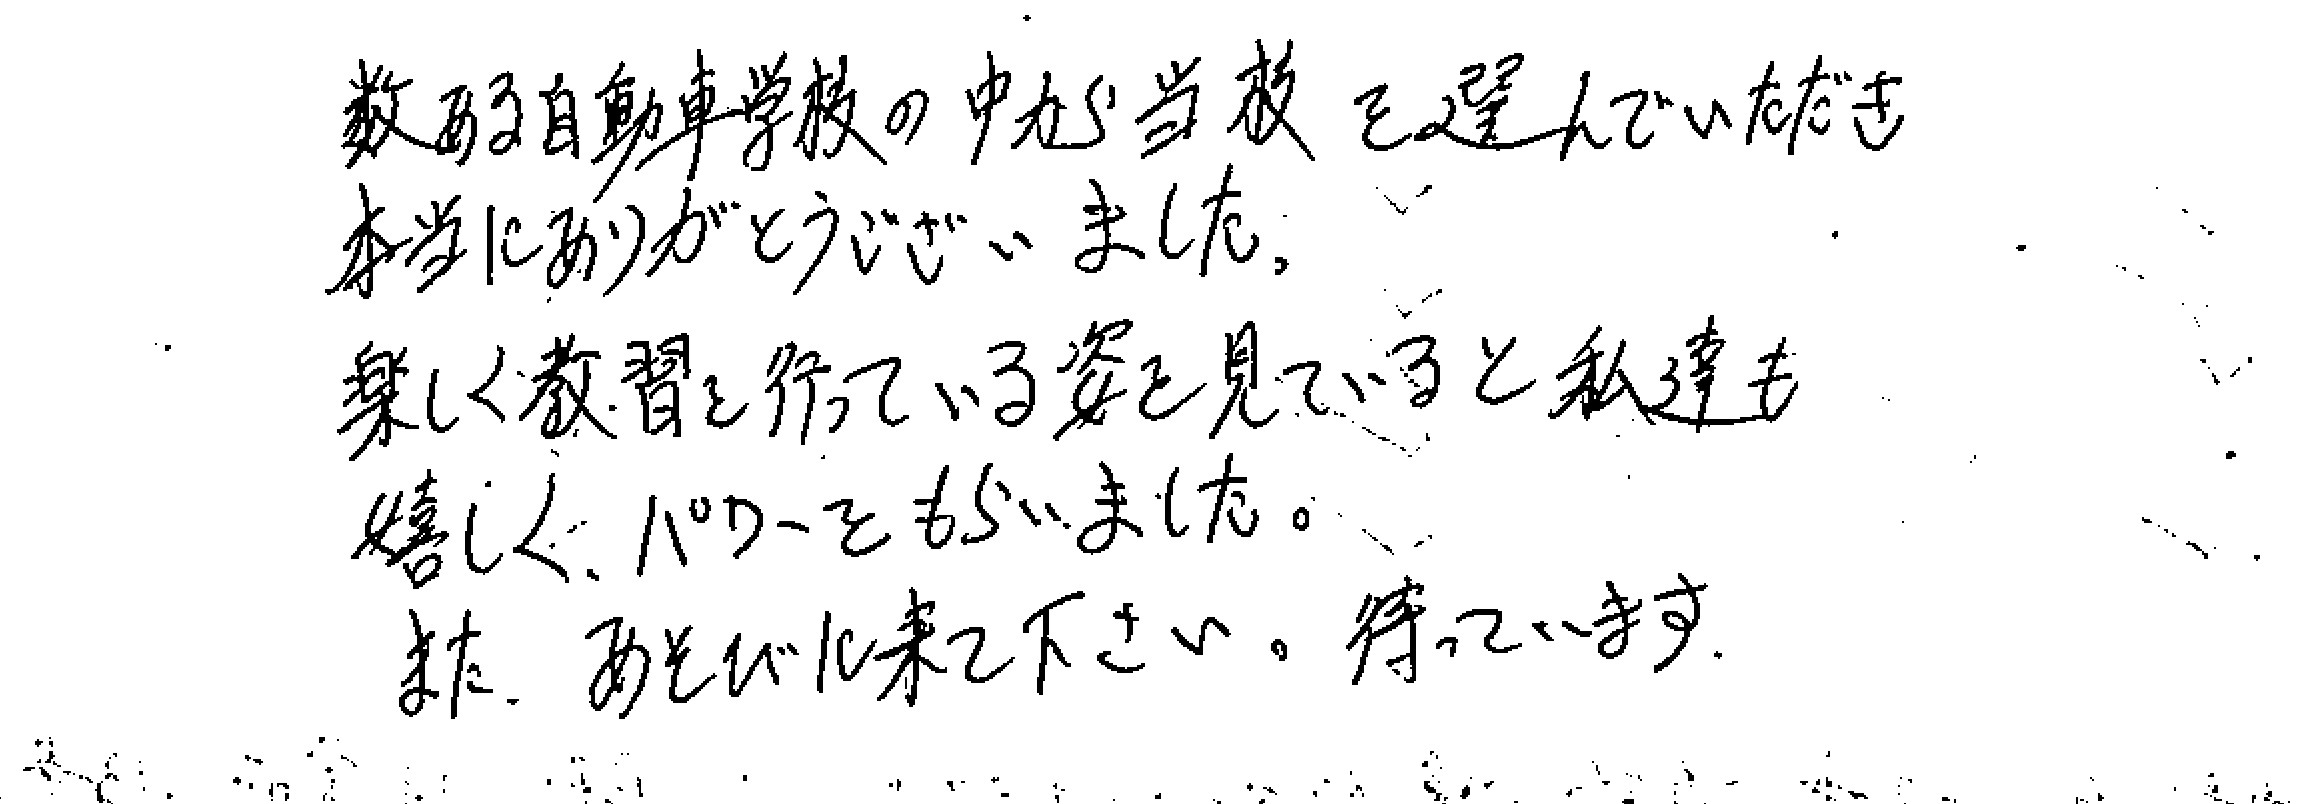 数ある自動車学校の中から当校を選んでいただき
本当にありがとうございました。
楽しく教習を行っている姿を見ていると私達も
嬉しく、パワーをもらいました。
また、あそびに来て下さい。待っています。